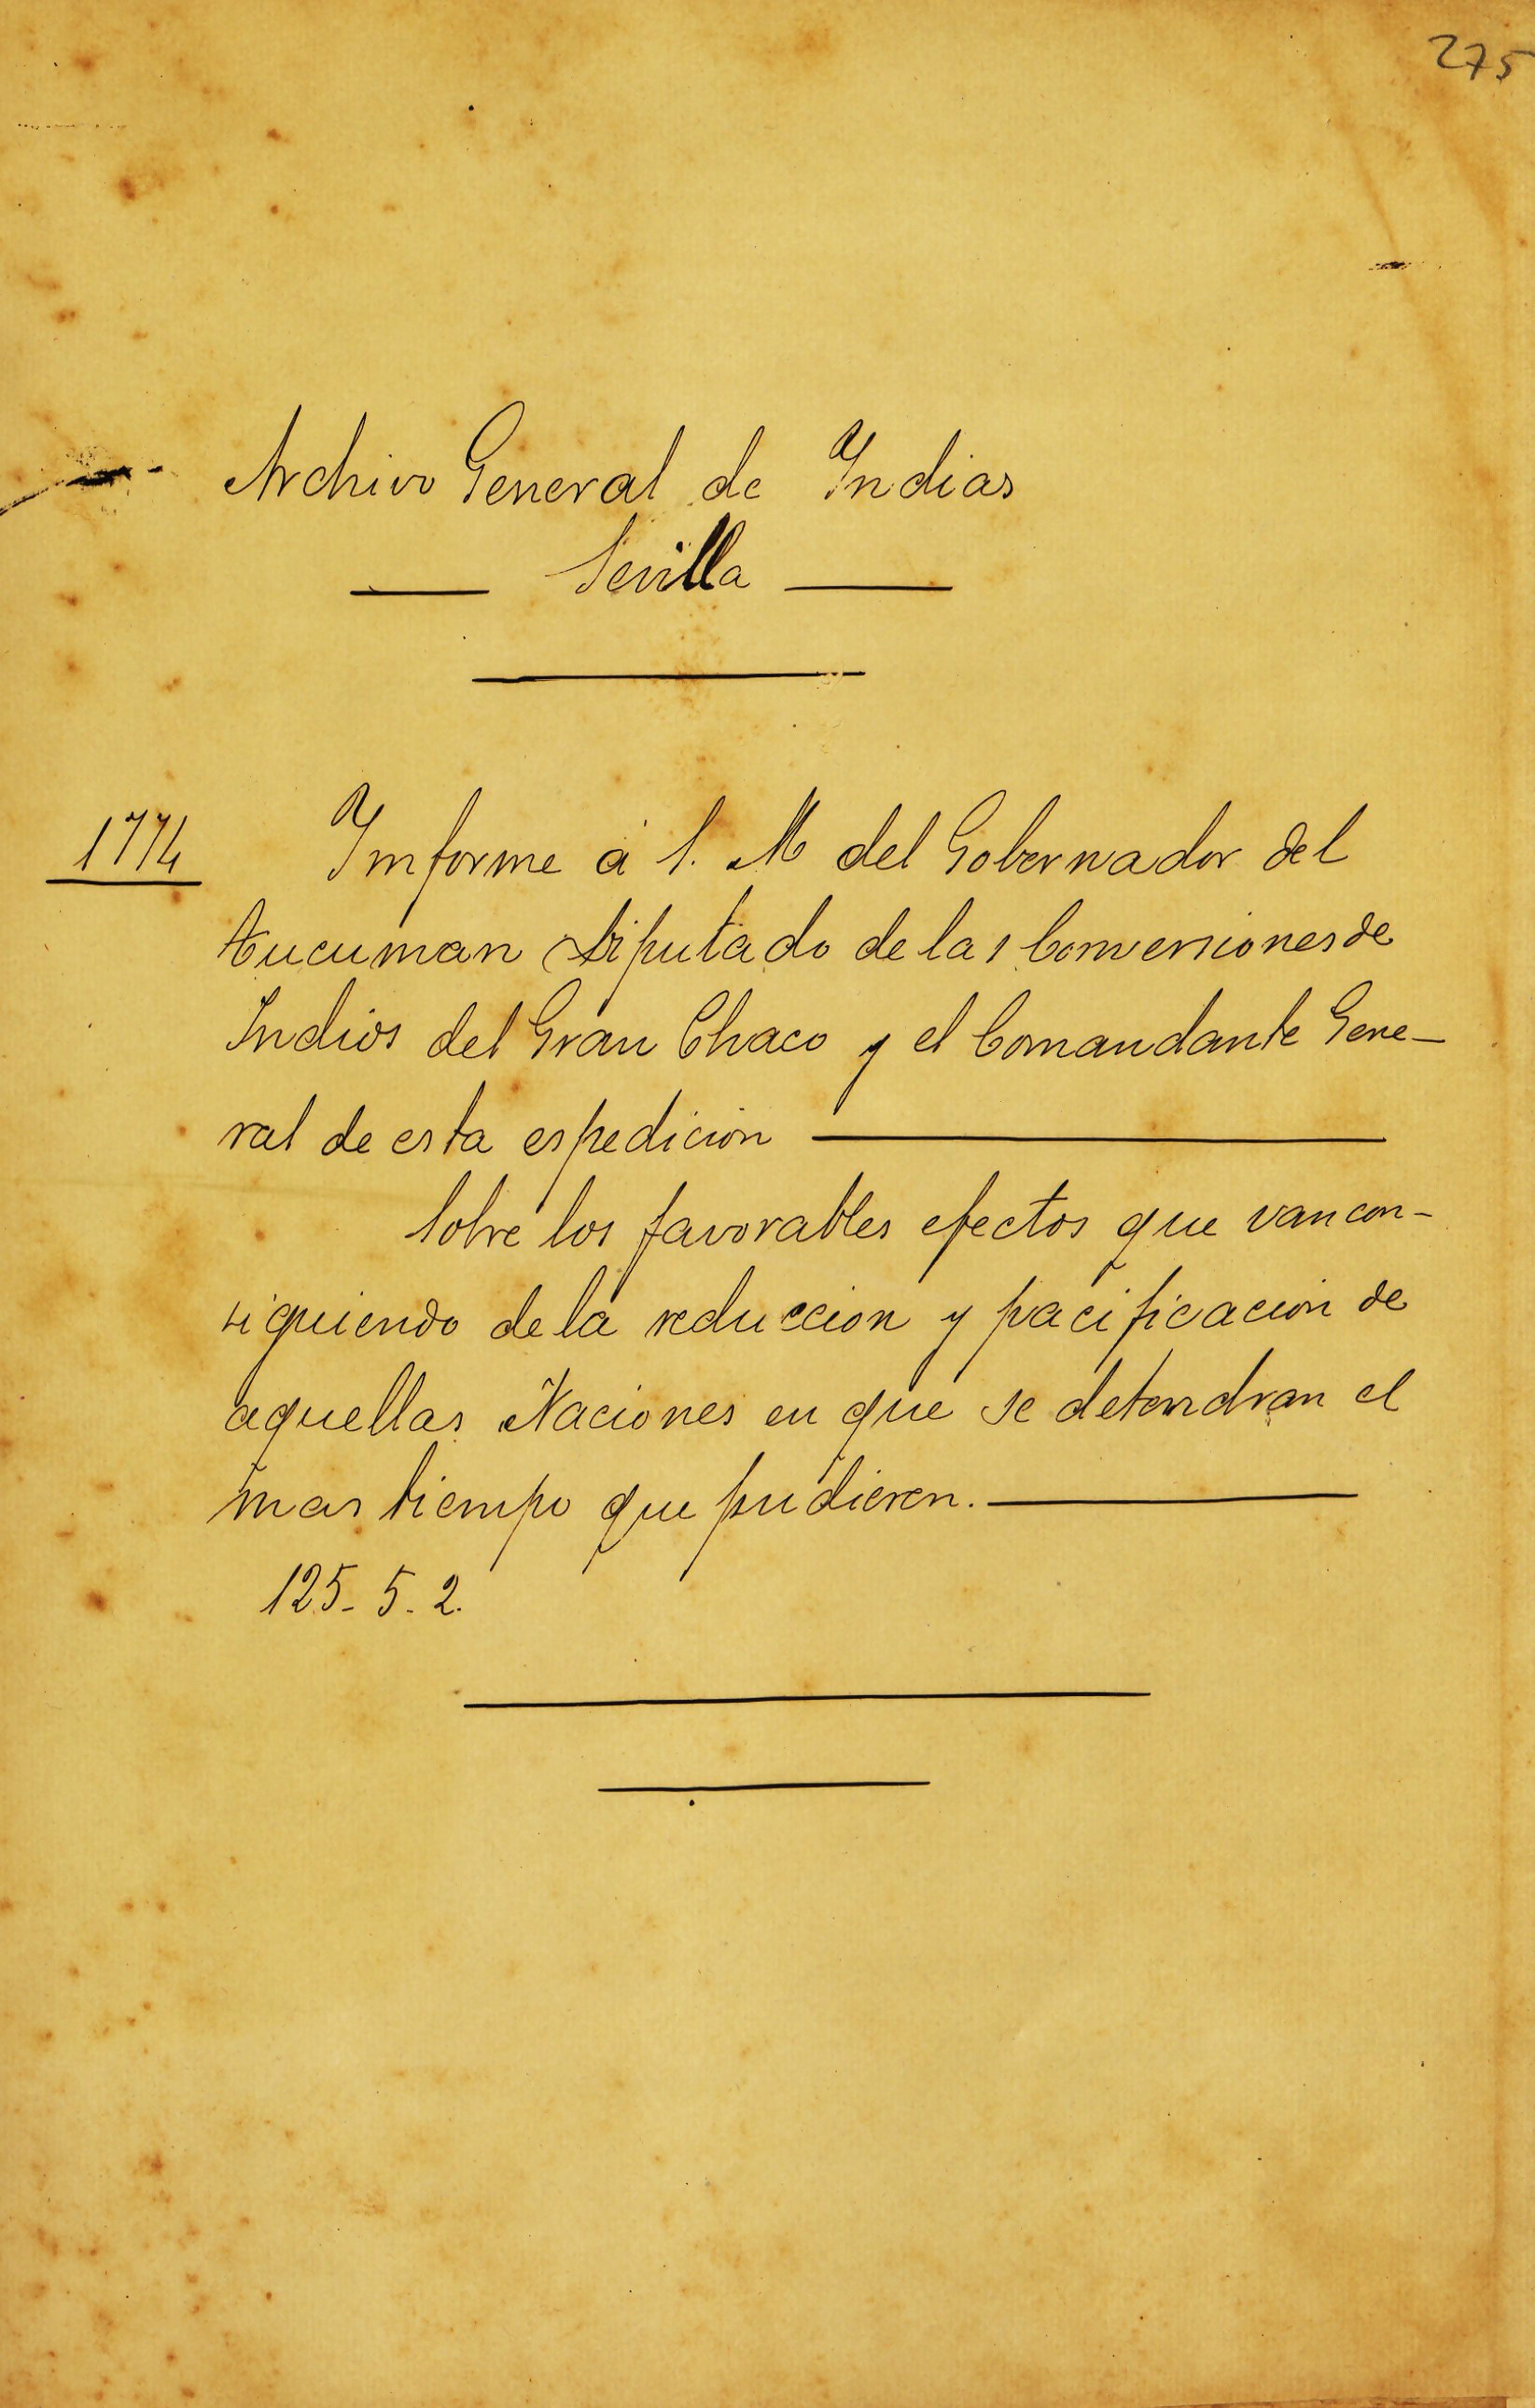 275
Archivo General de Indias
Sevilla
1774
Imforme á S. M del Gobernador del
Tucuman Diputado de las Conversiones de
Indios del Gran Chaco y el Comandante Gene-
ral de esta espedicion
Sobre los favorables efectos que van con-
siguiendo de la reduccion y pacificacion de
aquellas Naciones en que se detendran el
mas tiempo que pudieren.
125-5-2.